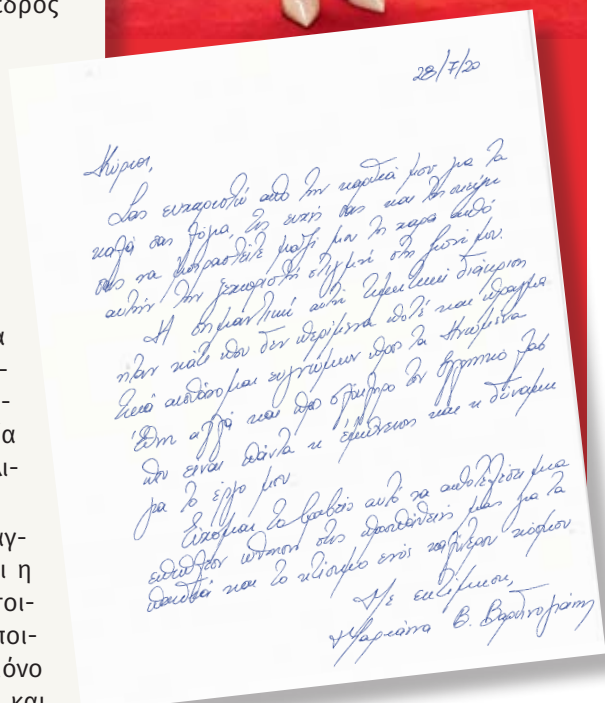 εδρος
28/7/20
Κύριοι,
Σας ευχαριστώ από την καρδιά μου για τα
καλά σας λόγια, τις ευχές σας και τη σκέψη
σας να μοιραστείτε μαζί μου τη χαρά από
αυτήν την ξεχωριστή στιγμή στη ζωή μου.
Η σημαντική αυτή τιμητική διάκριση
ήταν κάτι που δεν περίμενα ποτέ και πραγμα
τικά αισθάνομαι ευγνώμων προς τα Ηνωμένα
Έθνη αλλά και προς ολόκληρο τον ελληνικό λαό
που είναι πάντα η έμπνευση και η δύναμη
για το έργο μου
Εύχομαι το βραβείο αυτό να αποτελέσει μια
επιπλέον ώθηση στις προσπάθειές μας για τα
παιδιά και το κτίσιμο ενός καλύτερου κόσμου
Με εκτίμηση,
Μαριάννα Β. Βαρδινογιάννη
α
-
-
α
λι-
αγ-
ι η
τοι-
ποι-
όνο
και